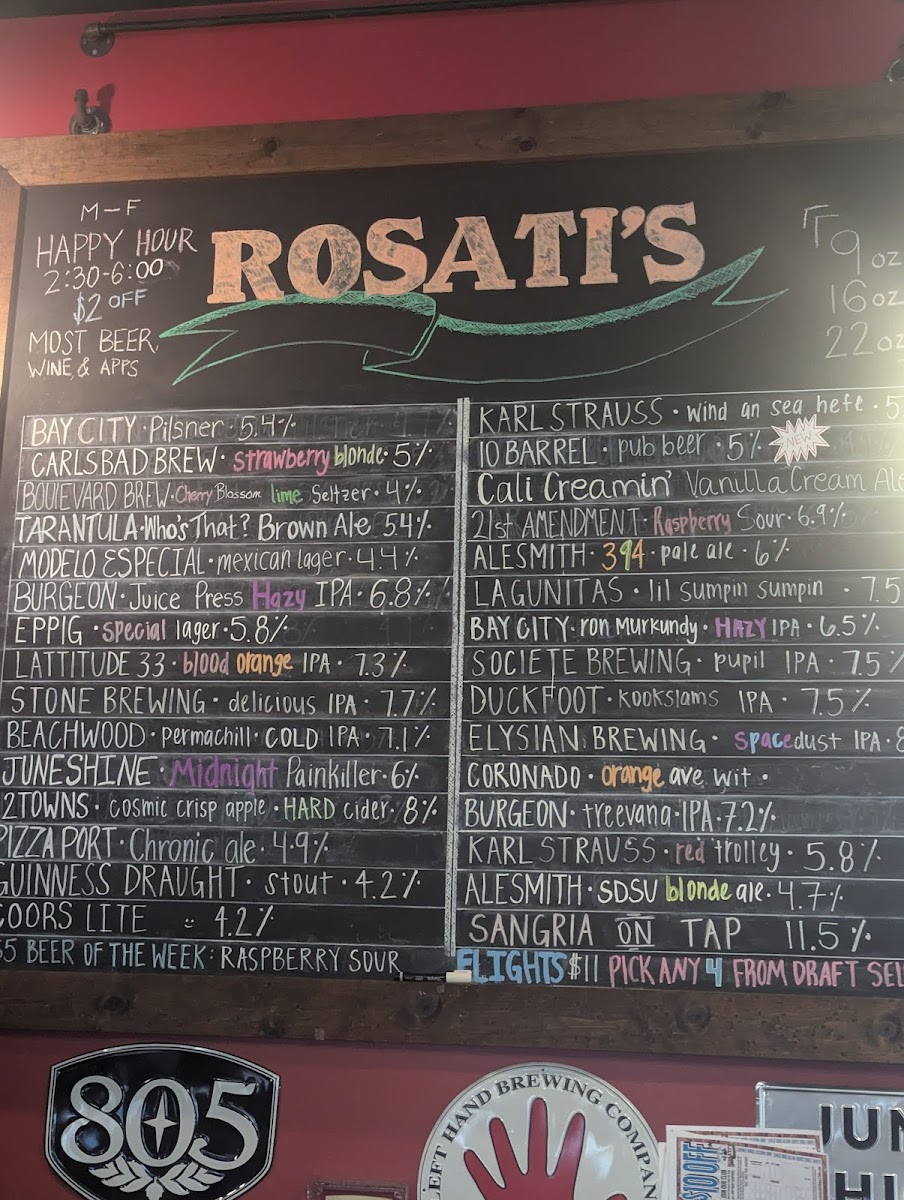 M-F
HAPPY HOUR
2:30-6:00
$2 OFF
MOST BEER,
WINE, & APPS
ROSATI'S
9 oz
16 oz
22 oz
BAY CITY · Pilsner · 5.4%
CARLSBAD BREW · strawberry blonde · 5%
BOULEVARD BREW · Cherry Blossom lime Seltzer · 4%
TARANTULA · Who's That? Brown Ale 5.4%
MODELO ESPECIAL · mexican lager · 4.4%
BURGEON · Juice Press Hazy IPA · 6.8%
EPPIG · special lager · 5.8%
LATTITUDE 33 · blood orange IPA · 7.3%
STONE BREWING · delicious IPA · 7.7%
BEACHWOOD · permachill · COLD IPA · 7.1%
JUNESHINE · Midnight Painkiller · 6%
2TOWNS · cosmic crisp apple · HARD cider · 8%
PIZZA PORT · Chronic ale · 4.9%
GUINNESS DRAUGHT · stout · 4.2%
COORS LITE :: 4.2%
$5 BEER OF THE WEEK: RASPBERRY SOUR
KARL STRAUSS · wind an sea hefe · 5
10 BARREL · pub beer · 5% NEW
Cali Creamin' Vanilla Cream Ale
21st AMENDMENT · Raspberry Sour · 6.9%
ALESMITH · 394 · pale ale · 6%
LAGUNITAS · lil sumpin sumpin · 7.5
BAY CITY · ron Murkundy · HAZY IPA · 6.5%
SOCIETE BREWING · pupil IPA · 7.5%
DUCKFOOT · kookslams IPA · 7.5%
ELYSIAN BREWING · spacedust IPA · 8
CORONADO · orange ave wit ·
BURGEON · treevana · IPA · 7.2%
KARL STRAUSS · red trolley · 5.8%
ALESMITH · SDSU blonde ale · 4.7%
SANGRIA ON TAP 11.5%
FLIGHTS $11 PICK ANY 4 FROM DRAFT SEL
805
LEFT HAND BREWING COMPANY
$10 OFF
JUN
HI